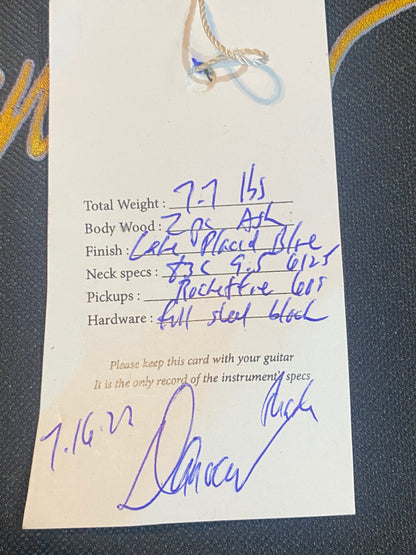 Total Weight : 7.7 lbs
Body Wood : 2 pc Ash
Finish : Lake Placid Blue
Neck specs : 9.5 6125
Pickups : Rocketfire 60s
Hardware : full steel block
Please keep this card with your guitar
It is the only record of the instrument's specs